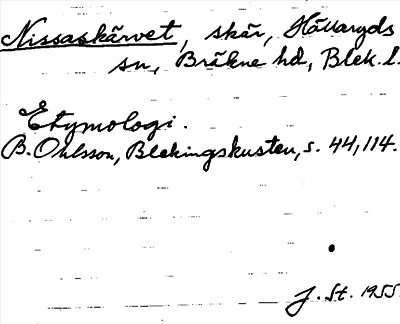 Nissaskärvet, skär, Hällaryds
sn, Bräkne hd, Blek. l.
Etymologi.
B. Ohlsson, Blekingskusten, s. 44, 114.
J. St. 1955